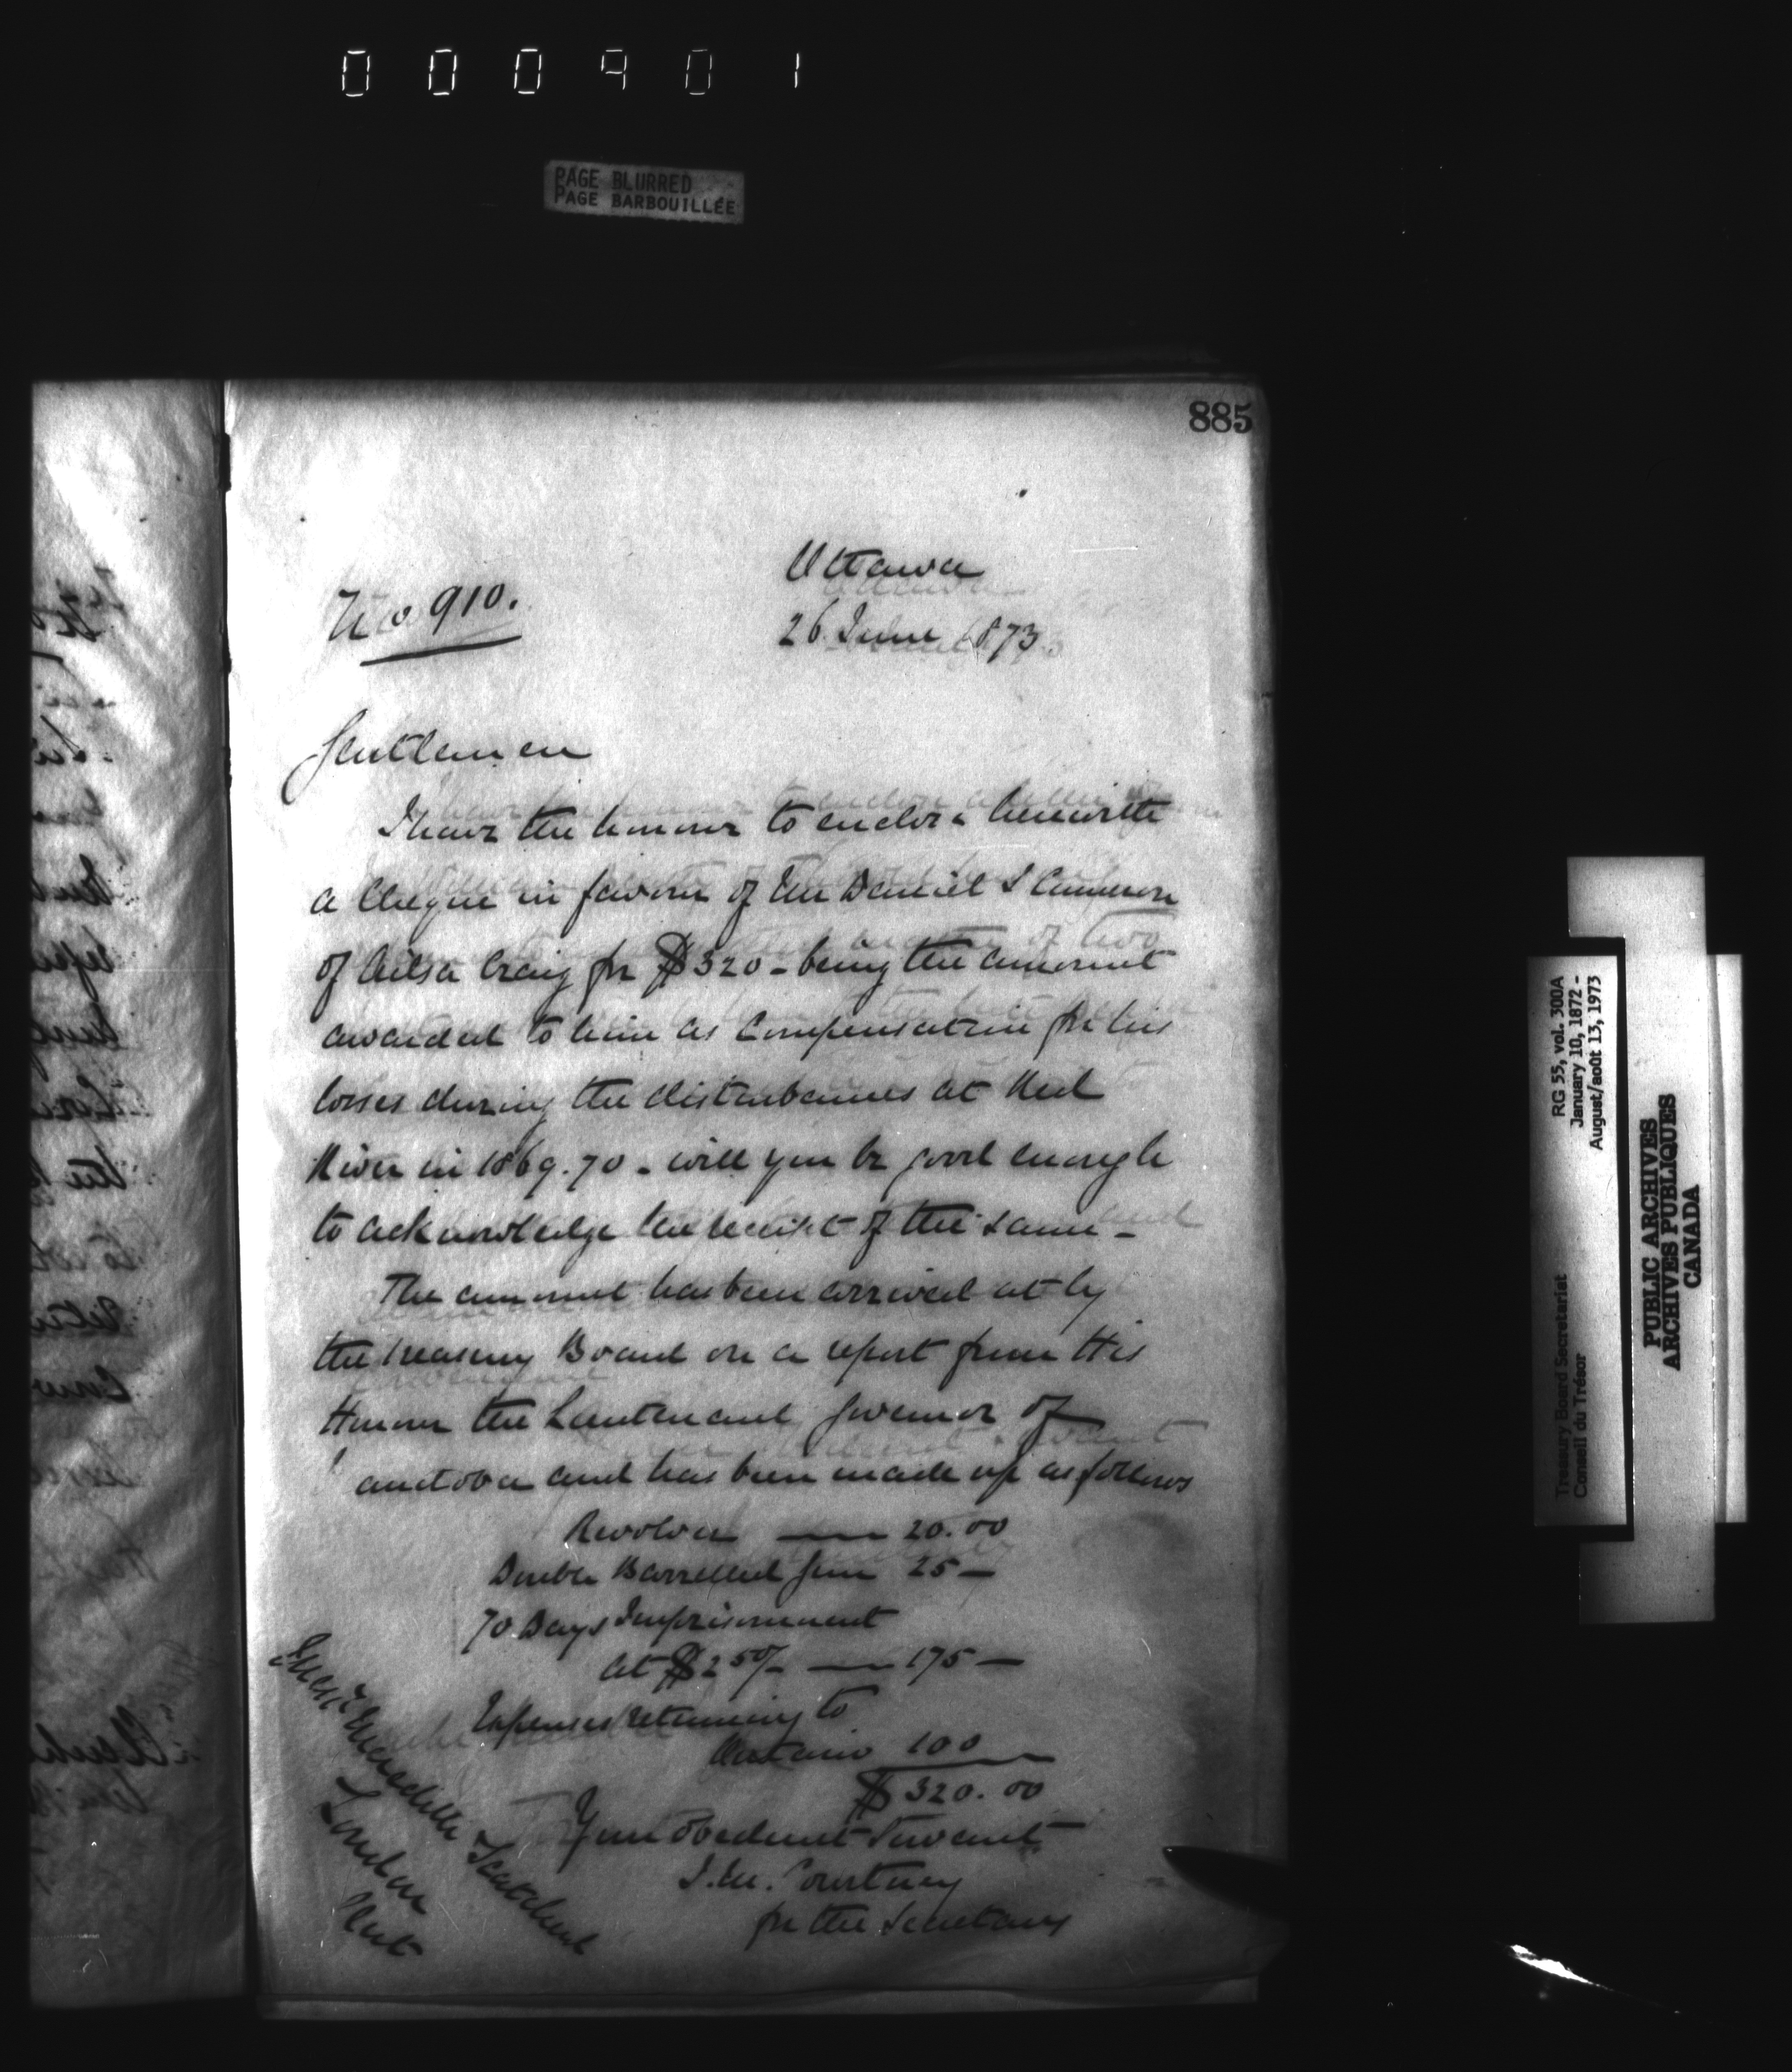 000901
PAGE BLURRED
PAGE BARBOUILLÉE
885
Ottawa
No. 910.
26 June 1873.
Gentlemen
I have the honour to enclose herewith
a Cheque in favour of Mr Daniel S Cameron
of Ailsa Craig for $320 - being the amount
awarded to him as Compensation for his
losses during the disturbances at Red
River in 1869.70 - will you be good enough
to acknowledge the receipt of the same -
The amount has been arrived at by
the Treasury Board on a report from His
Honour the Lieutenant Governor of
anitoba and has been made up as follows
Revolver — 20.00
Double Barrelled Gun 25 —
70 Days Imprisonment
at $2 50/- — 175 —
Expenses returning to
Ontario 100
$320.00
Your Obedient Servant
J.M. Courtney
for the Secretary
Messrs Meredith Scatcherd
London
Ont
RG 55, vol. 300A
January 10, 1872 -
August/août 13, 1973
Treasury Board Secretariat
Conseil du Trésor
PUBLIC ARCHIVES
ARCHIVES PUBLIQUES
CANADA